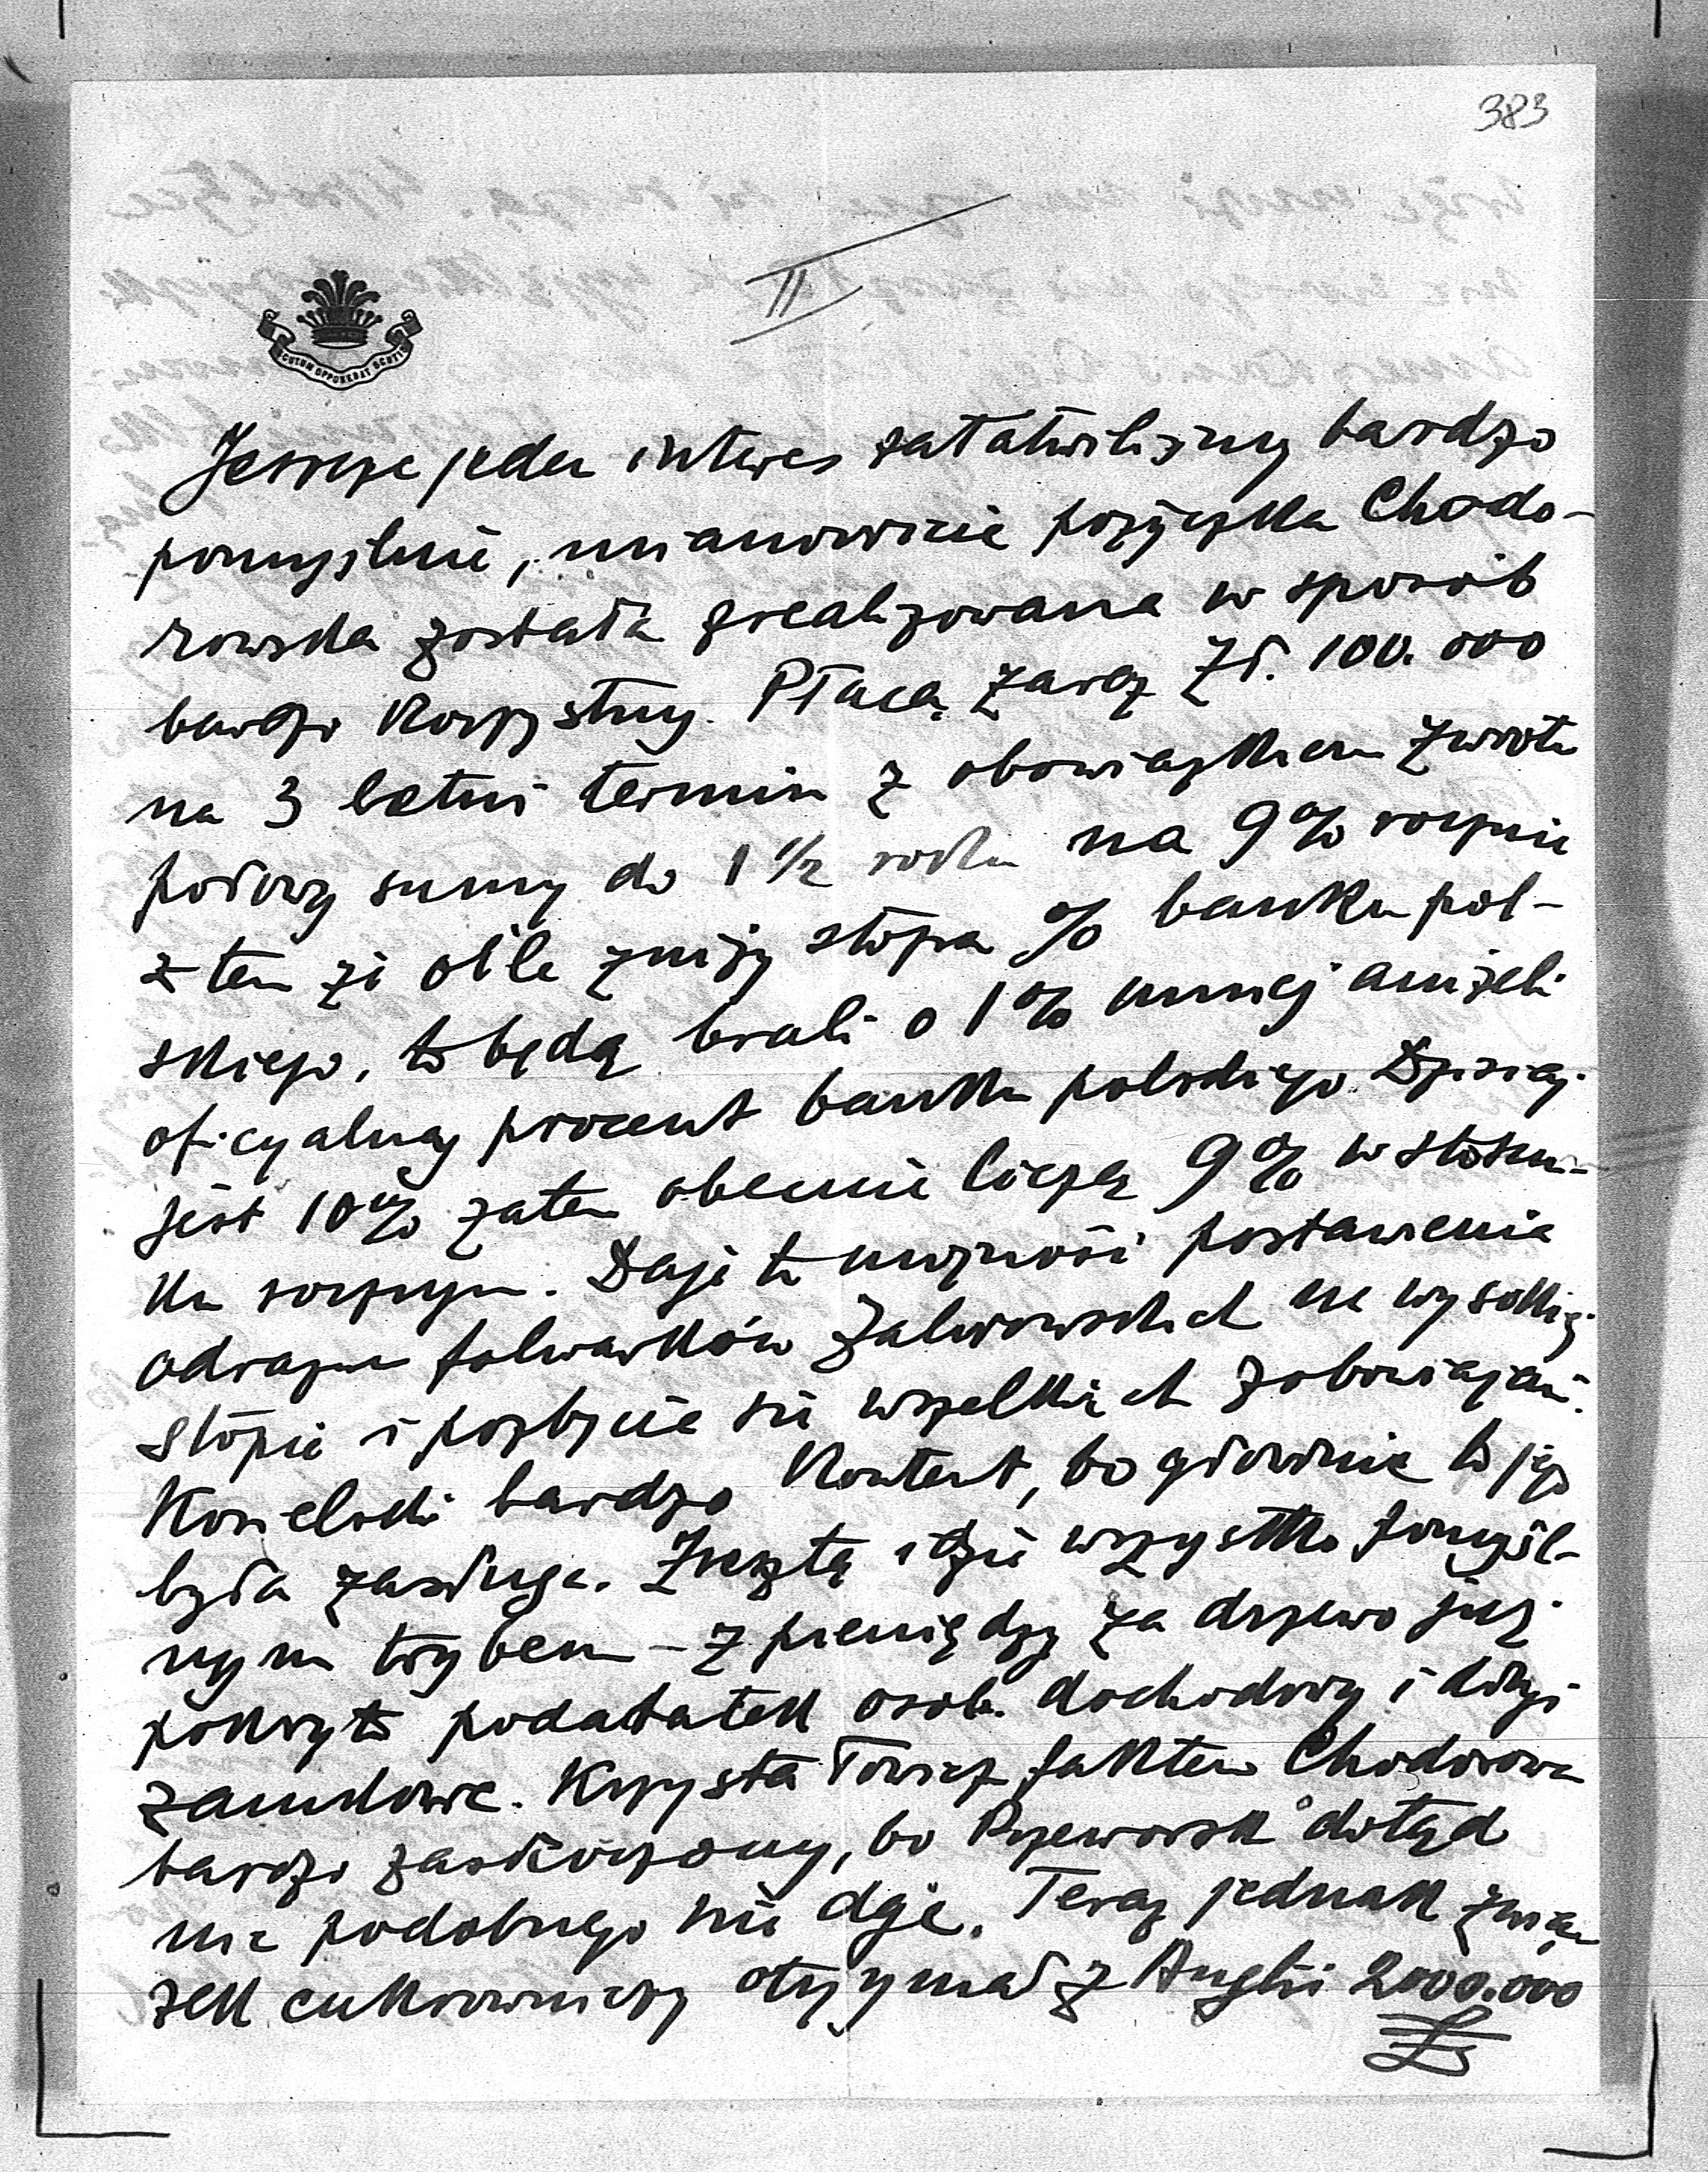 383
II
SCUTUM OPPONEBAT SCUTIS
Jeszcze jeden interes załatwiliśmy bardzo
pomyślnie, mianowicie pożyczka Chodo-
rowska została zrealizowana w sposób
bardzo korzystny. Płacą zaraz Zł. 100.000
na 3 letni termin z obowiązkiem zwrotu
połowy sumy do 1 1/2 roku na 9% rocznie
z tem że o ile zniży stopa % banku pol-
skiego, to będą brali o 1% mniej aniżeli
oficyalny procent banku polskiego. Dzisiaj
jest 10% zatem obecnie liczą 9% w stosun-
ku rocznym. Daje to możność postawienia
odrazu folwarków Załwowskich na wysokiej
stopie i pozbycie się wszelkich zobowiązań.
Kosielski bardzo kontent, bo głównie to jego
była zasługa. Zresztą idzie wszystko pomyśl-
nym trybem – z pieniędzy za drzewo już
pokryto podatatek osob. dochodowy i długi
zamkowe. Krzyształowicz faktem Chodorowa
bardzo zaskoczony, bo Przeworsk dotąd
nic podobnego nie daje. Teraz jednak związ-
zek cukrowniczy otrzymał z Anglii 2000.000
£